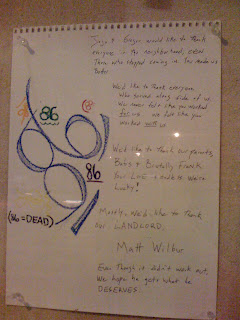 Jay & Ginger would like to thank
everyone in the neighborhood, even
those who stopped coming in. You made us
better
We'd like to thank everyone
who served along side of us
We never felt like you worked
for us, we felt like you
worked with us
We'd like to thank our parents,
Bob & Brutally Frank
Your love & endless
Lucky!
Mostly, we'd like to thank
our LANDLORD,
Matt Wilbur
Even though it didn't work out,
We hope he gets what he
DESERVES.
86
86
86
(86=DEAD)